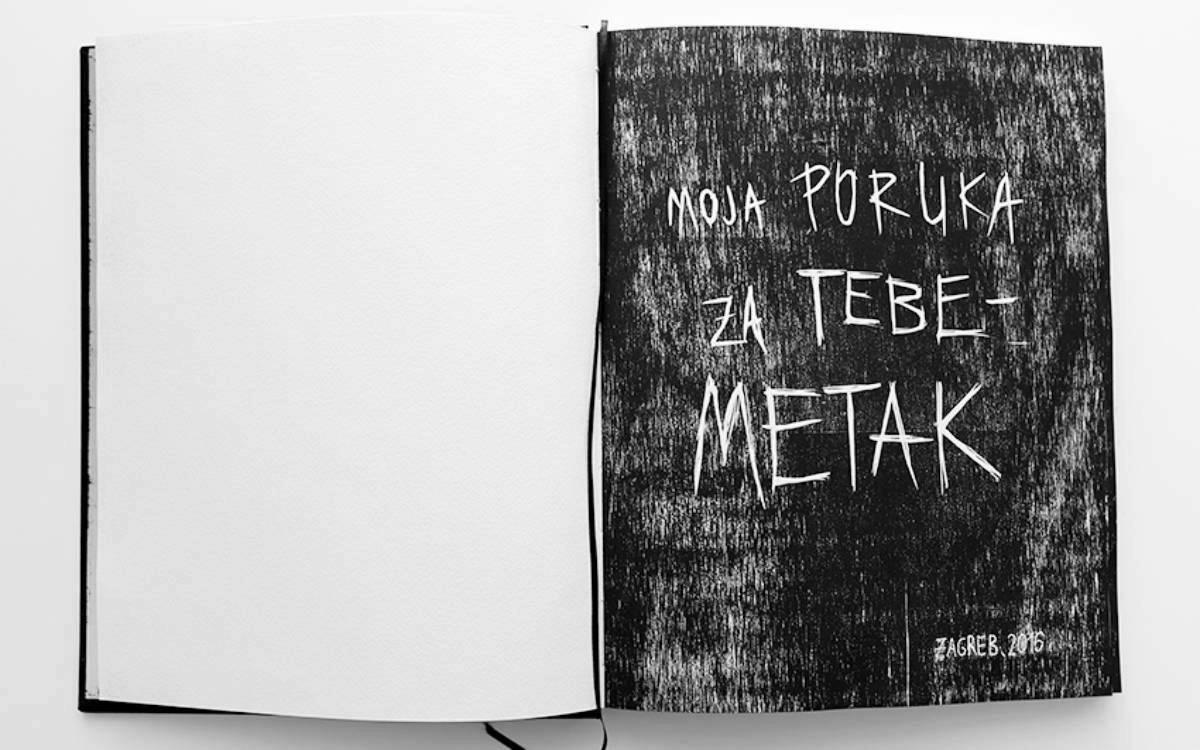 MOJA PORUKA
ZA TEBE-
METAK
ZAGREB, 2016